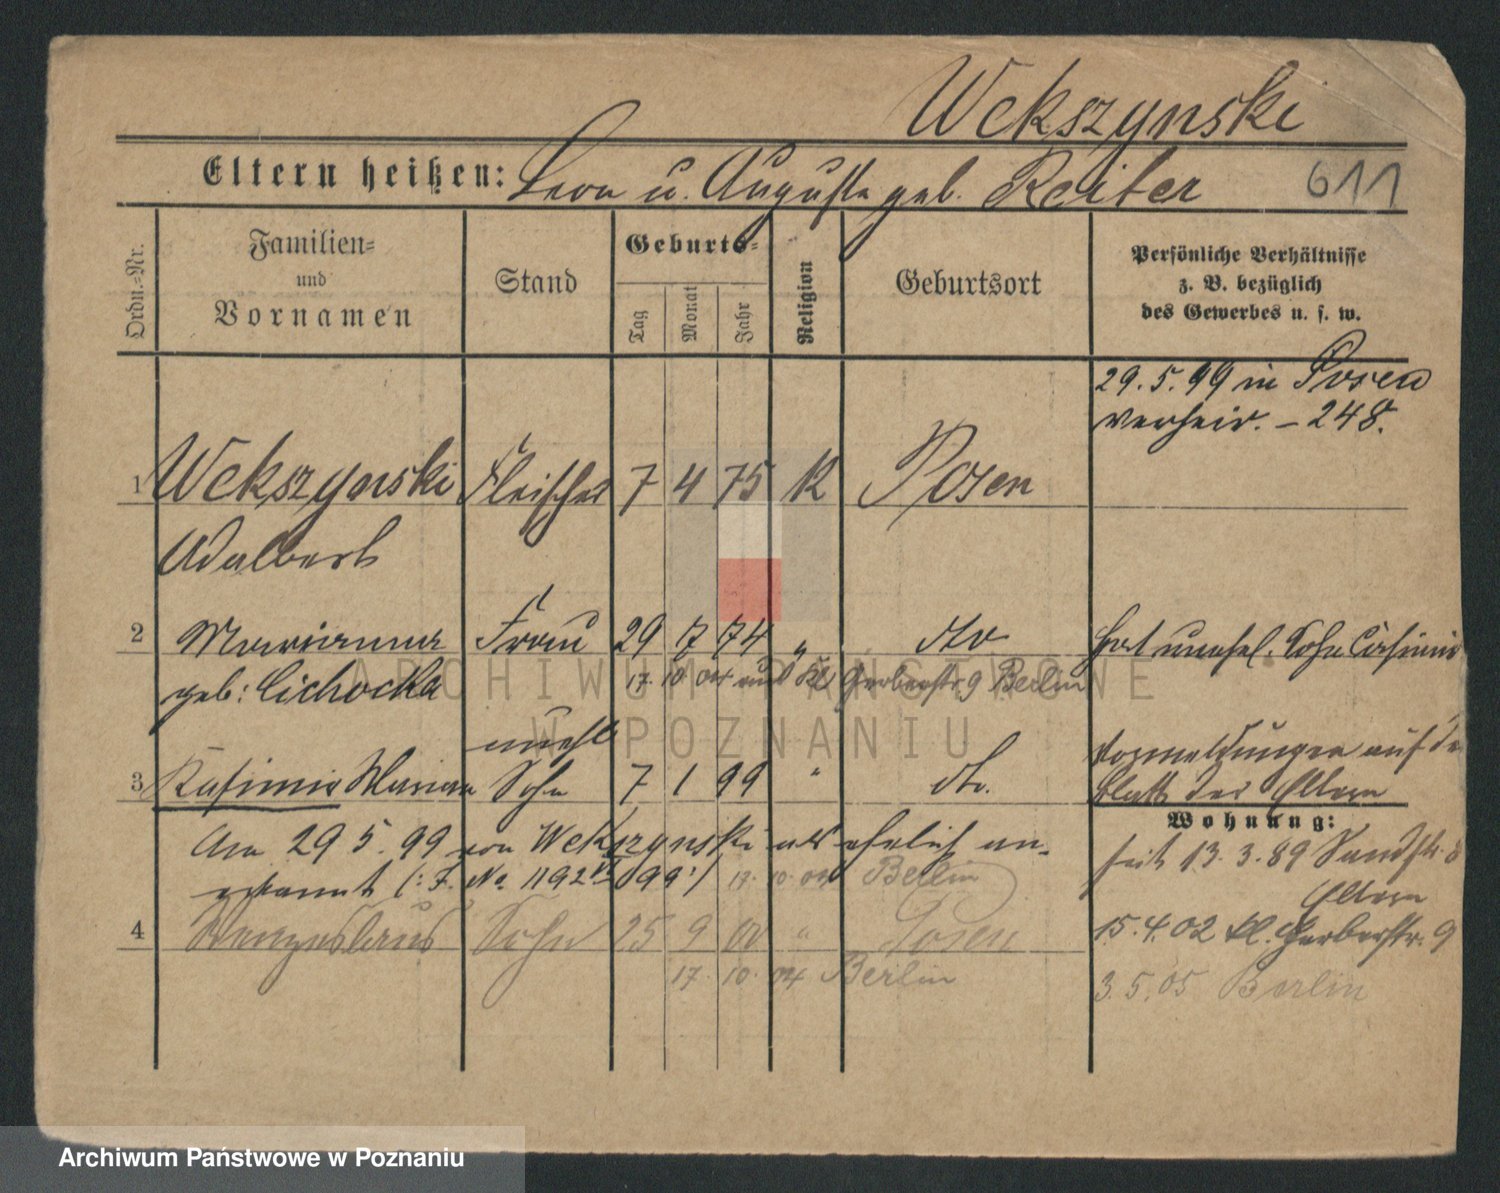 Wekszynski
Eltern heißen: Leon u. Auguste geb. Reiter
611
Ordn.-Nr.
Familien-
und
Vornamen
Stand
Geburts-
Tag
Monat
Jahr
Religion
Geburtsort
Persönliche Verhältnisse
z. B. bezüglich
des Gewerbes u. s. w.
29.5.99 in Posen
verheir. – 248.
1 Wekszynski Fleischer 7 4 75 K Posen
Adalbert
2 Marianna Frau 29 7 74 " dto Hat unehel. Sohn Casimir
geb: Cichocka 17. 10. 04 Gerberstr 9 Berlin
unehl
3 Kasimir Marian Sohn 7 1 99 " dto.
Vormeldungen auf dem
Blatt der Eltern
Am 29 5. 99 von Wekszynski als ehelich an-
erkannt (: J. No 1192 99 :) 17. 10. 04 Berlin
Wohnung:
seit 13. 3. 89 Sandstr. 8
Eltern
4 Wenzeslaus Sohn 25 9 00 " Posen
15.4.02 kl. Gerberstr. 9
17. 10. 04 Berlin
3.5.05 Berlin
ARCHIWUM PAŃSTWOWE
W POZNANIU
Archiwum Państwowe w Poznaniu